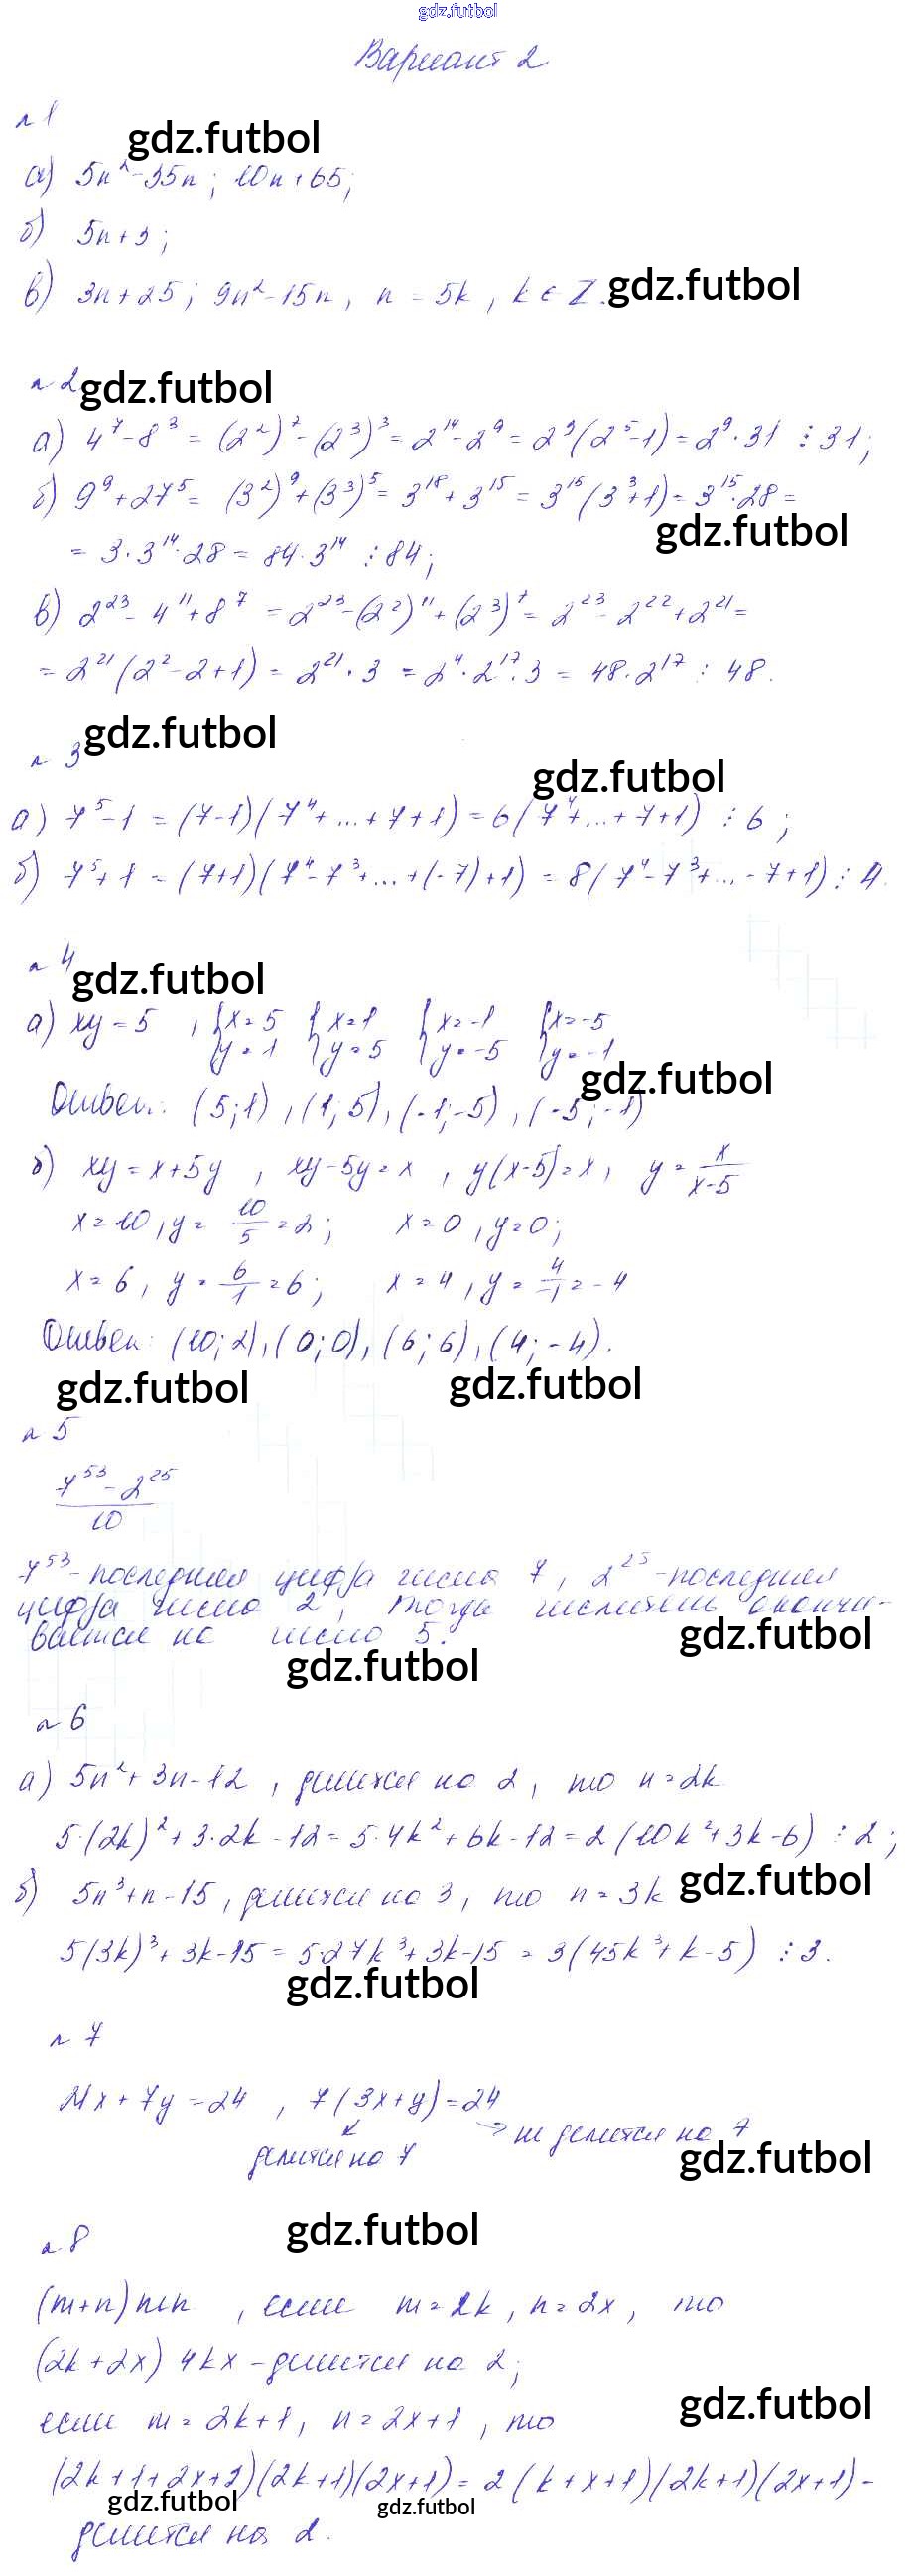 gdz.futbol
Вариант 2
№ 1
gdz.futbol
а) 5n² - 35n ; 10n + 65 ;
б) 5n + 3 ;
в) 3n + 25 ; 9n² - 15n , n = 5k , k ∈ Z.
gdz.futbol
№ 2
gdz.futbol
а) 4⁷ - 8³ = (2²)⁷ - (2³)³ = 2¹⁴ - 2⁹ = 2⁹(2⁵ - 1) = 2⁹ · 31 ⋮ 31 ;
б) 9⁹ + 27⁵ = (3²)⁹ + (3³)⁵ = 3¹⁸ + 3¹⁵ = 3¹⁵(3³ + 1) = 3¹⁵ · 28 =
gdz.futbol
= 3 · 3¹⁴ · 28 = 84 · 3¹⁴ ⋮ 84 ;
в) 2²³ - 4¹¹ + 8⁷ = 2²³ - (2²)¹¹ + (2³)⁷ = 2²³ - 2²² + 2²¹ =
= 2²¹(2² - 2 + 1) = 2²¹ · 3 = 2⁴ · 2¹⁷ · 3 = 48 · 2¹⁷ ⋮ 48.
gdz.futbol
№ 3
gdz.futbol
а) 7⁵ - 1 = (7 - 1)(7⁴ + ... + 7 + 1) = 6(7⁴ + ... + 7 + 1) ⋮ 6 ;
б) 7⁵ + 1 = (7 + 1)(7⁴ - 7³ + ... + (-7) + 1) = 8(7⁴ - 7³ + ... - 7 + 1) ⋮ 4.
№ 4
gdz.futbol
а) xy = 5 , { x = 5 { x = 1 { x = -1 { x = -5
y = 1 y = 5 y = -5 y = -1
gdz.futbol
Ответ: (5; 1) , (1; 5) , (-1; -5) , (-5; -1)
б) xy = x + 5y , xy - 5y = x , y(x - 5) = x , y = x/(x-5)
x = 10 , y = 10/5 = 2 ; x = 0 , y = 0 ;
x = 6 , y = 6/1 = 6 ; x = 4 , y = 4/-1 = -4
Ответ: (10; 2), (0; 0), (6; 6), (4; -4).
gdz.futbol
gdz.futbol
№ 5
7⁵³ - 2²⁵
10
7⁵³ - последняя цифра числа 7 , 2²⁵ - последняя
цифра числа 2 , тогда числитель оканчи-
вается на число 5.
gdz.futbol
gdz.futbol
№ 6
а) 5n² + 3n - 12 , делится на 2 , то n = 2k
5·(2k)² + 3·2k - 12 = 5·4k² + 6k - 12 = 2(10k² + 3k - 6) ⋮ 2 ;
gdz.futbol
б) 5n³ + n - 15 , делится на 3 , то n = 3k
5(3k)³ + 3k - 15 = 5·27k³ + 3k - 15 = 3(45k³ + k - 5) ⋮ 3.
gdz.futbol
№ 7
21x + 7y = 24 , 7(3x + y) = 24
↙ → не делится на 7
делится на 7
gdz.futbol
gdz.futbol
№ 8
(m + n) mn , если m = 2k , n = 2x , то
(2k + 2x) 4kx - делится на 2 ;
gdz.futbol
если m = 2k + 1 , n = 2x + 1 , то
(2k + 1 + 2x + 1)(2k + 1)(2x + 1) = 2(k + x + 1)(2k + 1)(2x + 1) -
gdz.futbol
gdz.futbol
делится на 2.